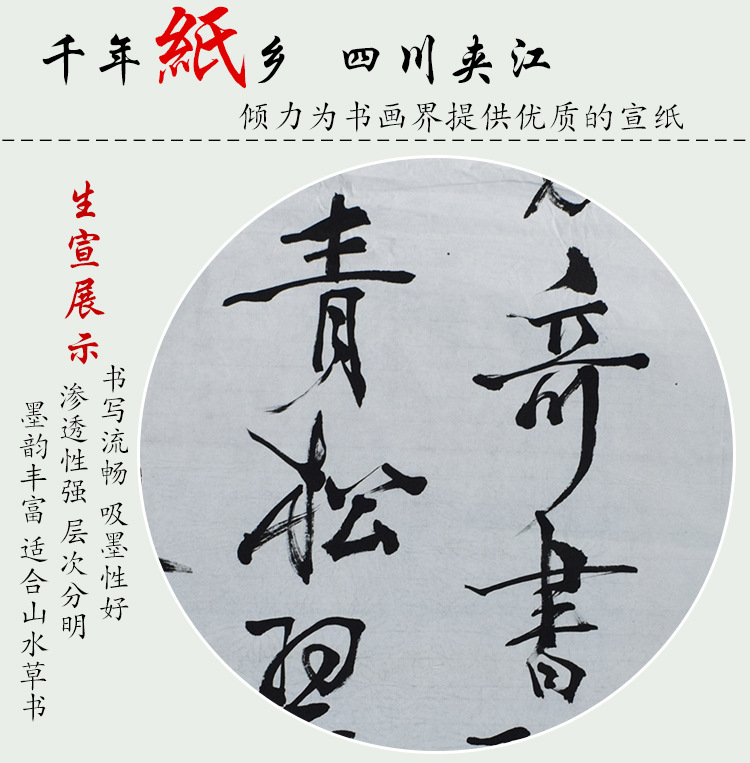 千年紙乡 四川夹江
倾力为书画界提供优质的宣纸
生宣展示
书写流畅 吸墨性好
渗透性强 层次分明
墨韵丰富 适合山水草书
奇書
青松